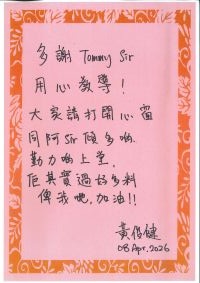 多謝 Tommy Sir
用心教導！
大家請打開心窗
同阿Sir傾多啲
勤力啲上堂,
佢其實過好多料
俾我哋,加油!!
黃俊健
08 Apr, 2026